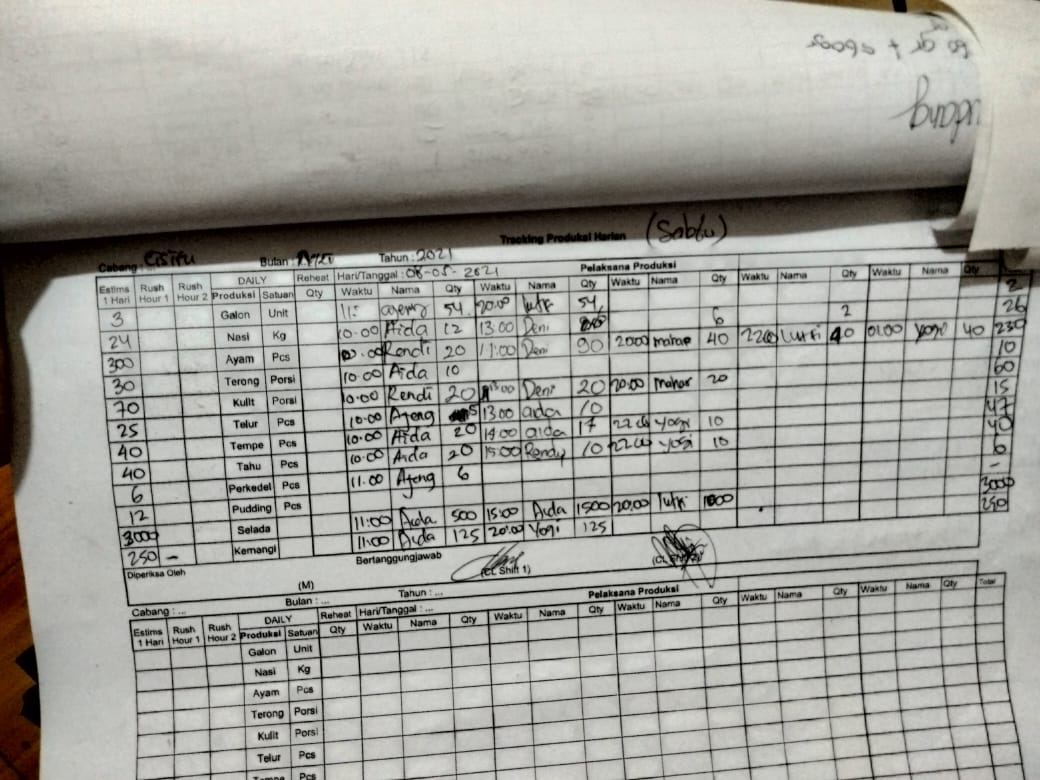 Tracking Produksi Harian (Sabtu)
Cabang : Cisitu Bulan : Mei Tahun : 2021
Estims 1 Hari Rush Hour 1 Rush Hour 2 DAILY Reheat Hari/Tanggal : 08-05-2021 Pelaksana Produksi
Produksi Satuan Qty Waktu Nama Qty Waktu Nama Qty Waktu Nama Qty Waktu Nama Qty Waktu Nama Qty
3 Galon Unit 54 20.00 54 2
24 Nasi Kg 10.00 Aida 12 13.00 Deni 6 2 26
300 Ayam Pcs Rendi 20 11:00 Deni 90 20.00 mahar 40 22.00 Lutfi 40 01.00 yogi 40 230
30 Terong Porsi 10.00 Aida 10 10
70 Kulit Porsi 10.00 Rendi 20 Deni 20 20.00 mahar 20 60
25 Telur Pcs 10.00 Ajeng 5 13.00 aida 10 15
40 Tempe Pcs 10.00 Aida 20 14.00 aida 17 22.00 yogi 10 47
40 Tahu Pcs 10.00 Aida 20 15:00 Rendy 10 22.00 yogi 10 40
6 Perkedel Pcs 11.00 Ajeng 6 6
12 Pudding Pcs -
3000 Selada 11:00 Aida 500 15:00 Aida 1500 20.00 lutfi 1000 3000
250 - Kemangi 11:00 Aida 125 20:00 Yogi 125 250
Diperiksa Oleh Bertanggungjawab
(M) (CL Shift 1)
Cabang : ... Bulan : ... Tahun : ... Pelaksana Produksi
Estims 1 Hari Rush Hour 1 Rush Hour 2 DAILY Reheat Hari/Tanggal : ... Total
Produksi Satuan Qty Waktu Nama Qty Waktu Nama Qty Waktu Nama Qty Waktu Nama Qty Waktu Nama Qty
Galon Unit
Nasi Kg
Ayam Pcs
Terong Porsi
Kulit Porsi
Telur Pcs
Tempe Pcs